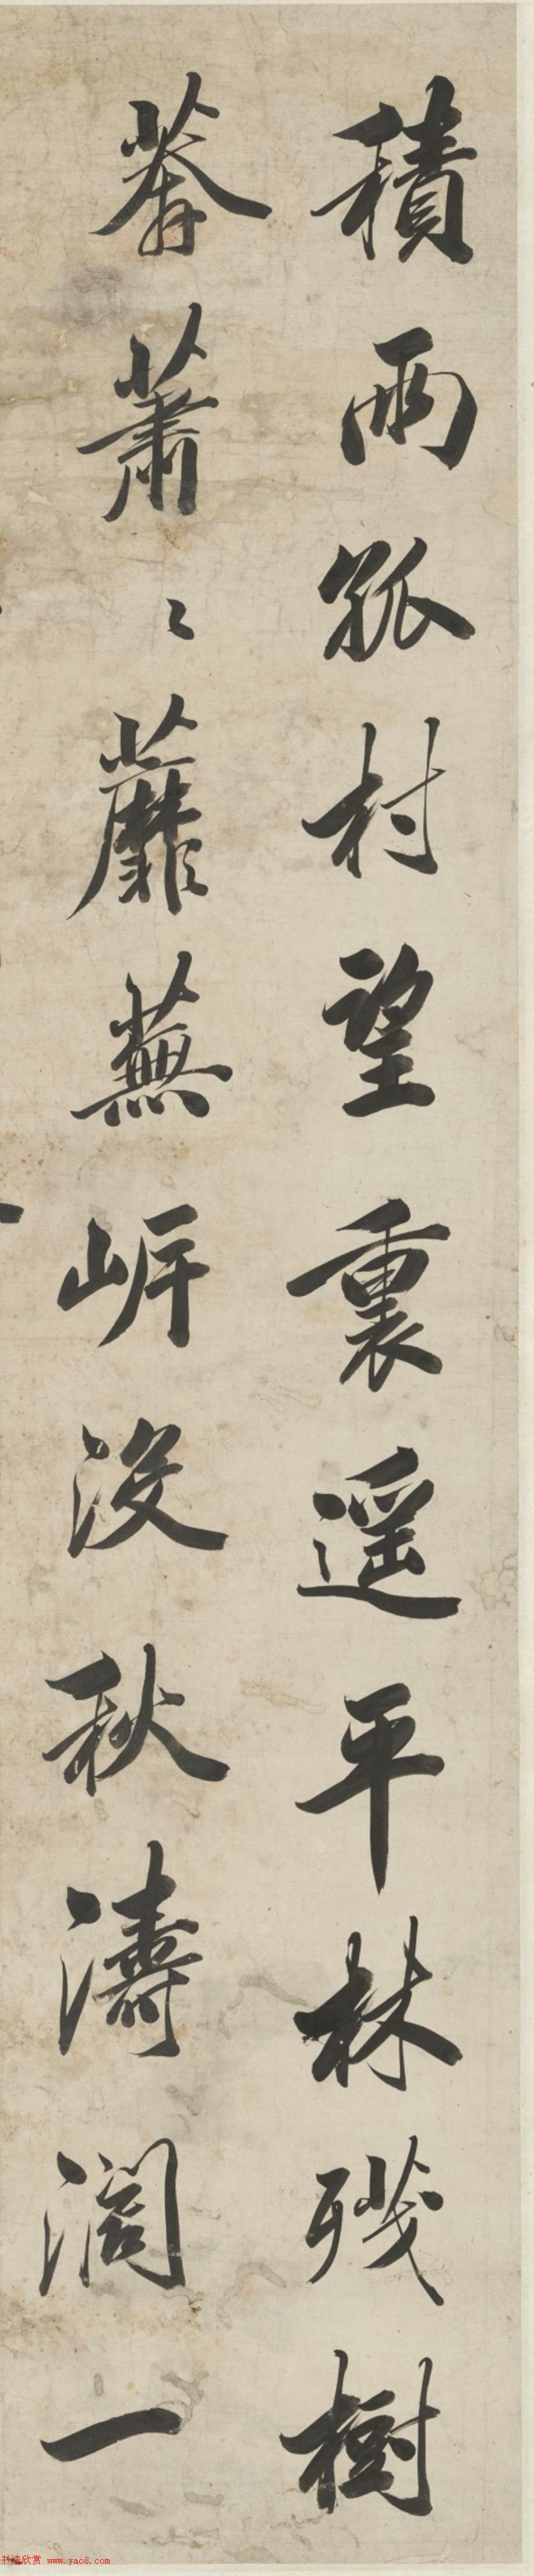 積雨孤村望裏遥平林殘樹
莽蕭〻蘼蕪岍没秋濤濶一
书法欣赏 www.yac8.com